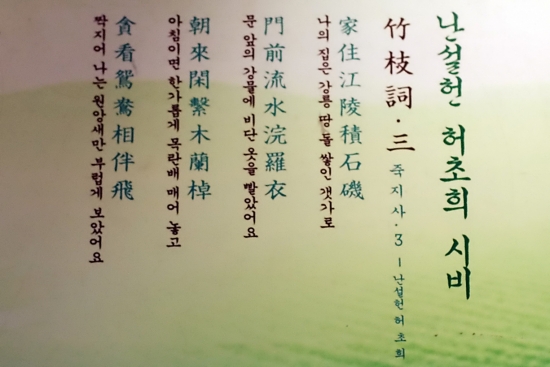 난설헌 허초희 시비
竹枝詞·三 죽지사·3 - 난설헌 허초희
家住江陵積石磯
나의 집은 강릉 땅 돌 쌓인 갯가로
門前流水浣羅衣
문 앞의 강물에 비단 옷을 빨았어요
朝來閑繫木蘭棹
아침이면 한가롭게 목란배 매어 놓고
貪看鴛鴦相伴飛
짝지어 나는 원앙새만 부럽게 보았어요